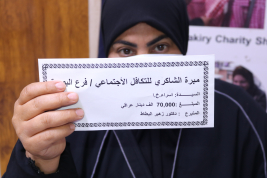 akiry Charity Sh
مبرة الشاكري للتكافل الاجتماعي / فرع
السيدة:
المبلغ: 70,000 الف دينار عراقي
المتبرع: دكتور زهير